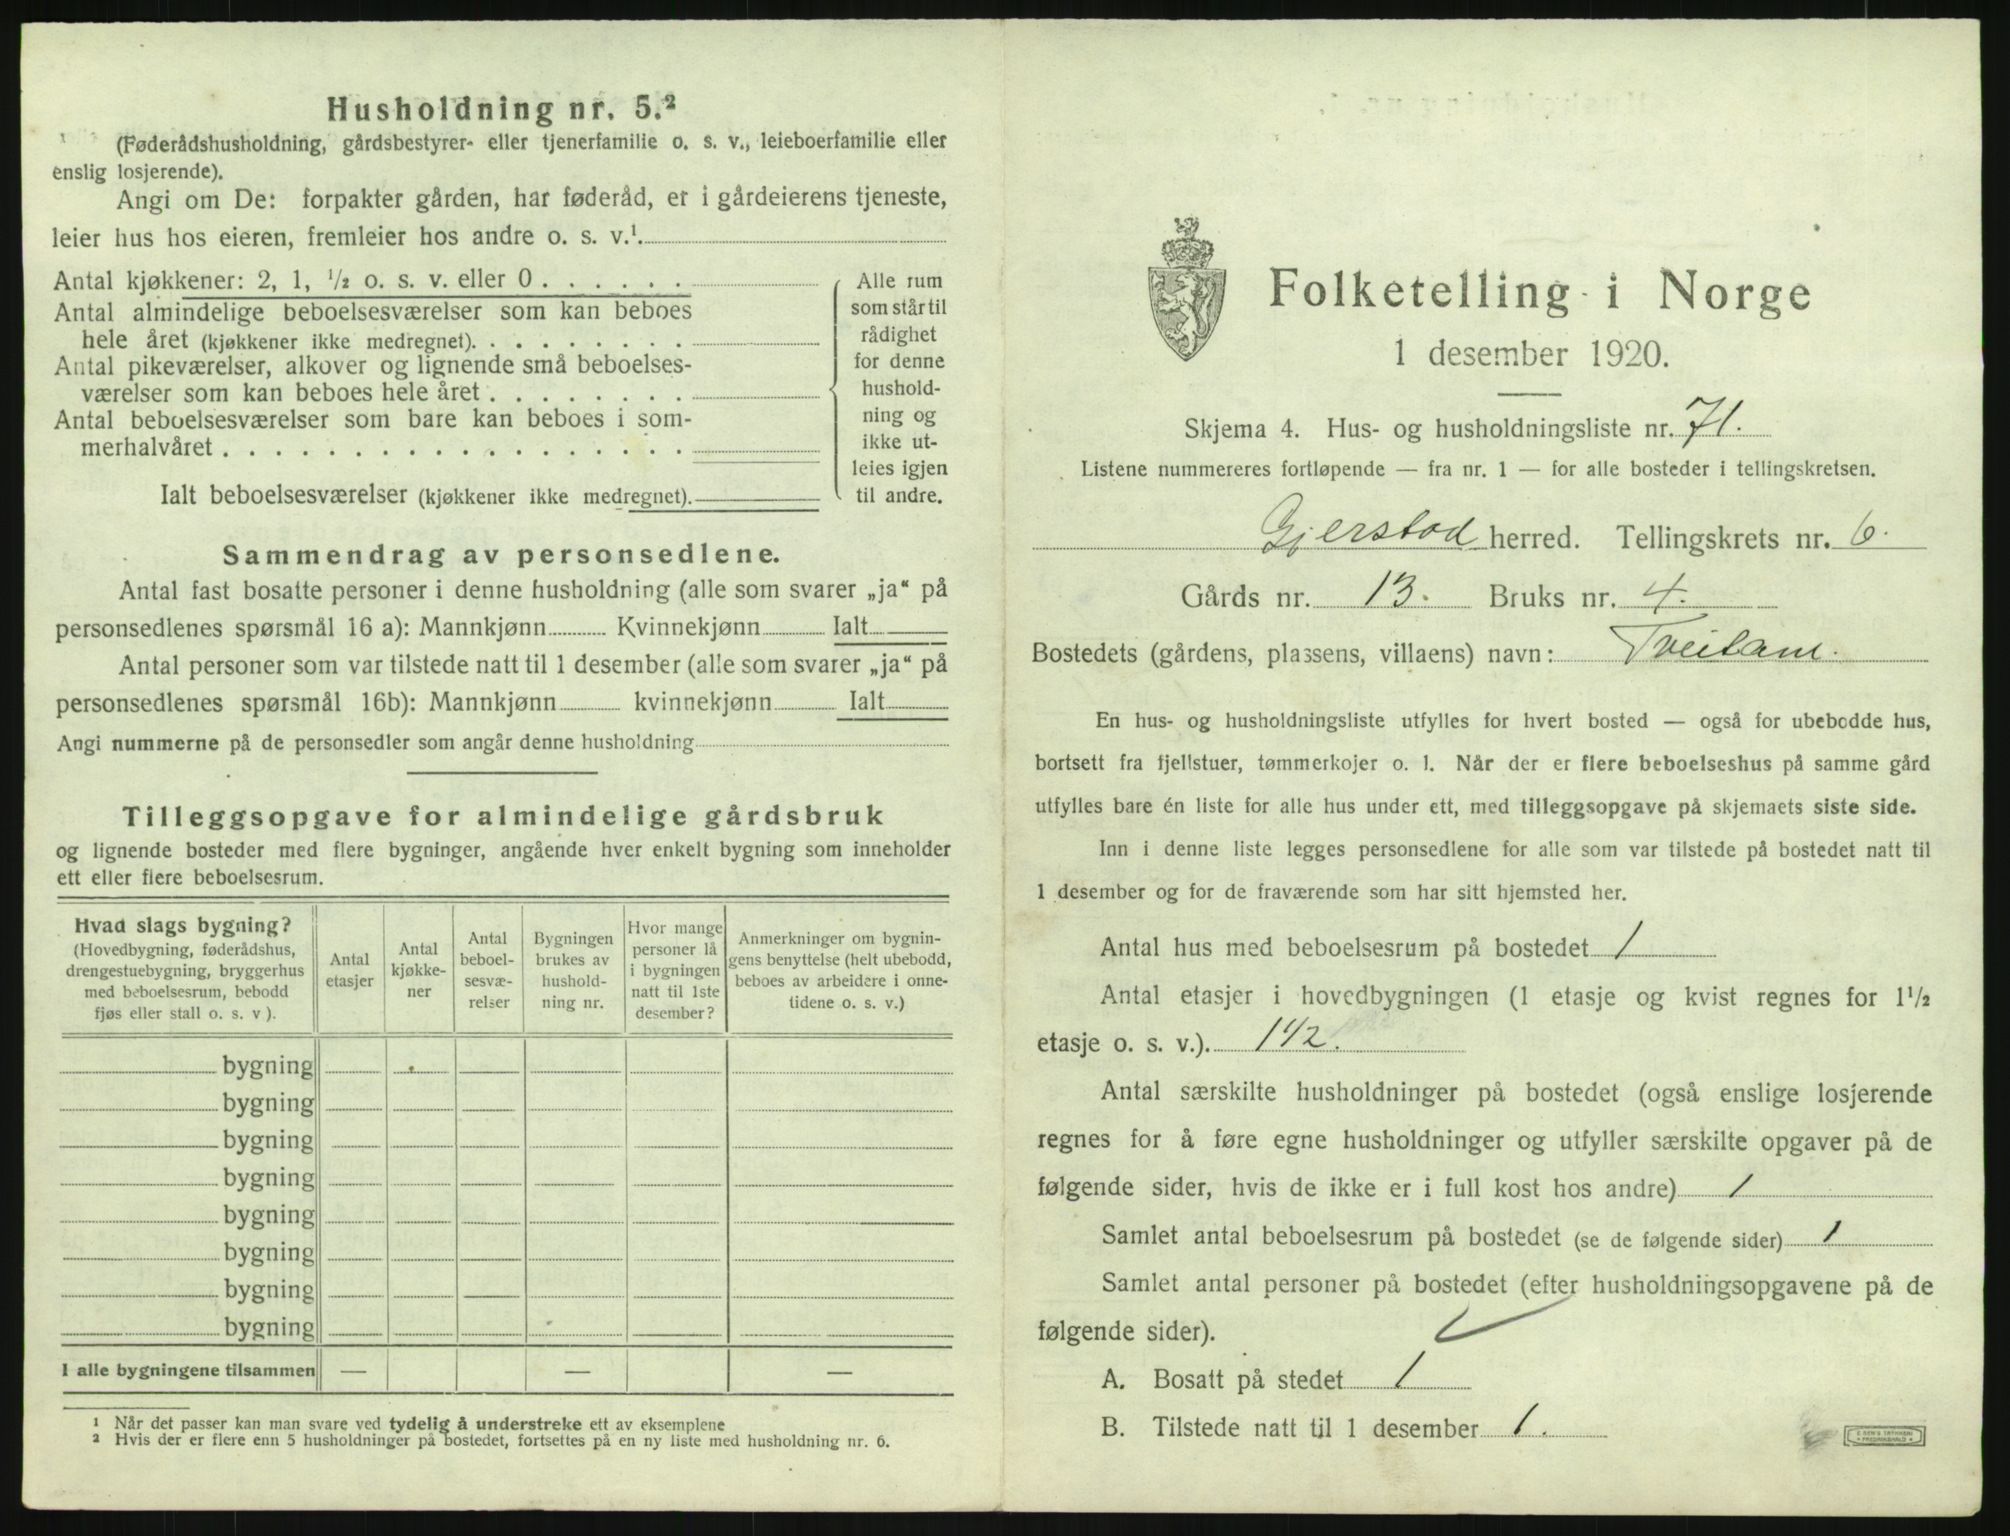 Husholdning nr. 5.²
(Føderådshusholdning, gårdsbestyrer- eller tjenerfamilie o. s. v., leieboerfamilie eller
enslig losjerende).
Angi om De: forpakter gården, har føderåd, er i gårdeierens tjeneste,
leier hus hos eieren, fremleier hos andre o. s. v.¹
Antal kjøkkener: 2, 1, ½ o. s. v. eller 0 . . . . . .
Antal almindelige beboelsesværelser som kan beboes
hele året (kjøkkener ikke medregnet). . . . . . . . .
Antal pikeværelser, alkover og lignende små beboelses-
værelser som kan beboes hele året . . . . . . . .
Antal beboelsesværelser som bare kan beboes i som-
merhalvåret . . . . . . . . . . . . . . . . . .
Ialt beboelsesværelser (kjøkkener ikke medregnet).
Alle rum
som står til
rådighet
for denne
hushold-
ning og
ikke ut-
leies igjen
til andre.
Sammendrag av personsedlene.
Antal fast bosatte personer i denne husholdning (alle som svarer „ja“ på
personsedlenes spørsmål 16 a): Mannkjønn Kvinnekjønn Ialt
Antal personer som var tilstede natt til 1 desember (alle som svarer „ja“ på
personsedlenes spørsmål 16b): Mannkjønn kvinnekjønn Ialt
Angi nummerne på de personsedler som angår denne husholdning
Tilleggsopgave for almindelige gårdsbruk
og lignende bosteder med flere bygninger, angående hver enkelt bygning som inneholder
ett eller flere beboelsesrum.
Hvad slags bygning?
(Hovedbygning, føderådshus,
drengestuebygning, bryggerhus
med beboelsesrum, bebodd
fjøs eller stall o. s. v ).
Antal
etasjer
Antal
kjøkke-
ner
Antal
beboel-
sesvæ-
relser
Bygningen
brukes av
hushold-
ning nr.
Hvor mange
personer lå
i bygningen
natt til 1ste
desember?
Anmerkninger om bygnin-
gens benyttelse (helt ubebodd,
beboes av arbeidere i onne-
tidene o. s. v.)
bygning
bygning
bygning
bygning
bygning
bygning
bygning
bygning
I alle bygningene tilsammen — — —
¹ Når det passer kan man svare ved tydelig å understreke ett av eksemplene
² Hvis der er flere enn 5 husholdninger på bostedet, fortsettes på en ny liste med husholdning nr. 6.
Folketelling i Norge
1 desember 1920.
Skjema 4. Hus- og husholdningsliste nr. 71.
Listene nummereres fortløpende — fra nr. 1 — for alle bosteder i tellingskretsen.
Gjerstad herred. Tellingskrets nr. 6.
Gårds nr. 13. Bruks nr. 4.
Bostedets (gårdens, plassens, villaens) navn: Tveitane.
En hus- og husholdningsliste utfylles for hvert bosted — også for ubebodde hus,
bortsett fra fjellstuer, tømmerkojer o. l. Når der er flere beboelseshus på samme gård
utfylles bare én liste for alle hus under ett, med tilleggsopgave på skjemaets siste side.
Inn i denne liste legges personsedlene for alle som var tilstede på bostedet natt til
1 desember og for de fraværende som har sitt hjemsted her.
Antal hus med beboelsesrum på bostedet 1
Antal etasjer i hovedbygningen (1 etasje og kvist regnes for 1½
etasje o. s. v.). 1½.
Antal særskilte husholdninger på bostedet (også enslige losjerende
regnes for å føre egne husholdninger og utfyller særskilte opgaver på de
følgende sider, hvis de ikke er i full kost hos andre) 1
Samlet antal beboelsesrum på bostedet (se de følgende sider) 1
Samlet antal personer på bostedet (efter husholdningsopgavene på de
følgende sider).
A. Bosatt på stedet 1
B. Tilstede natt til 1 desember 1.